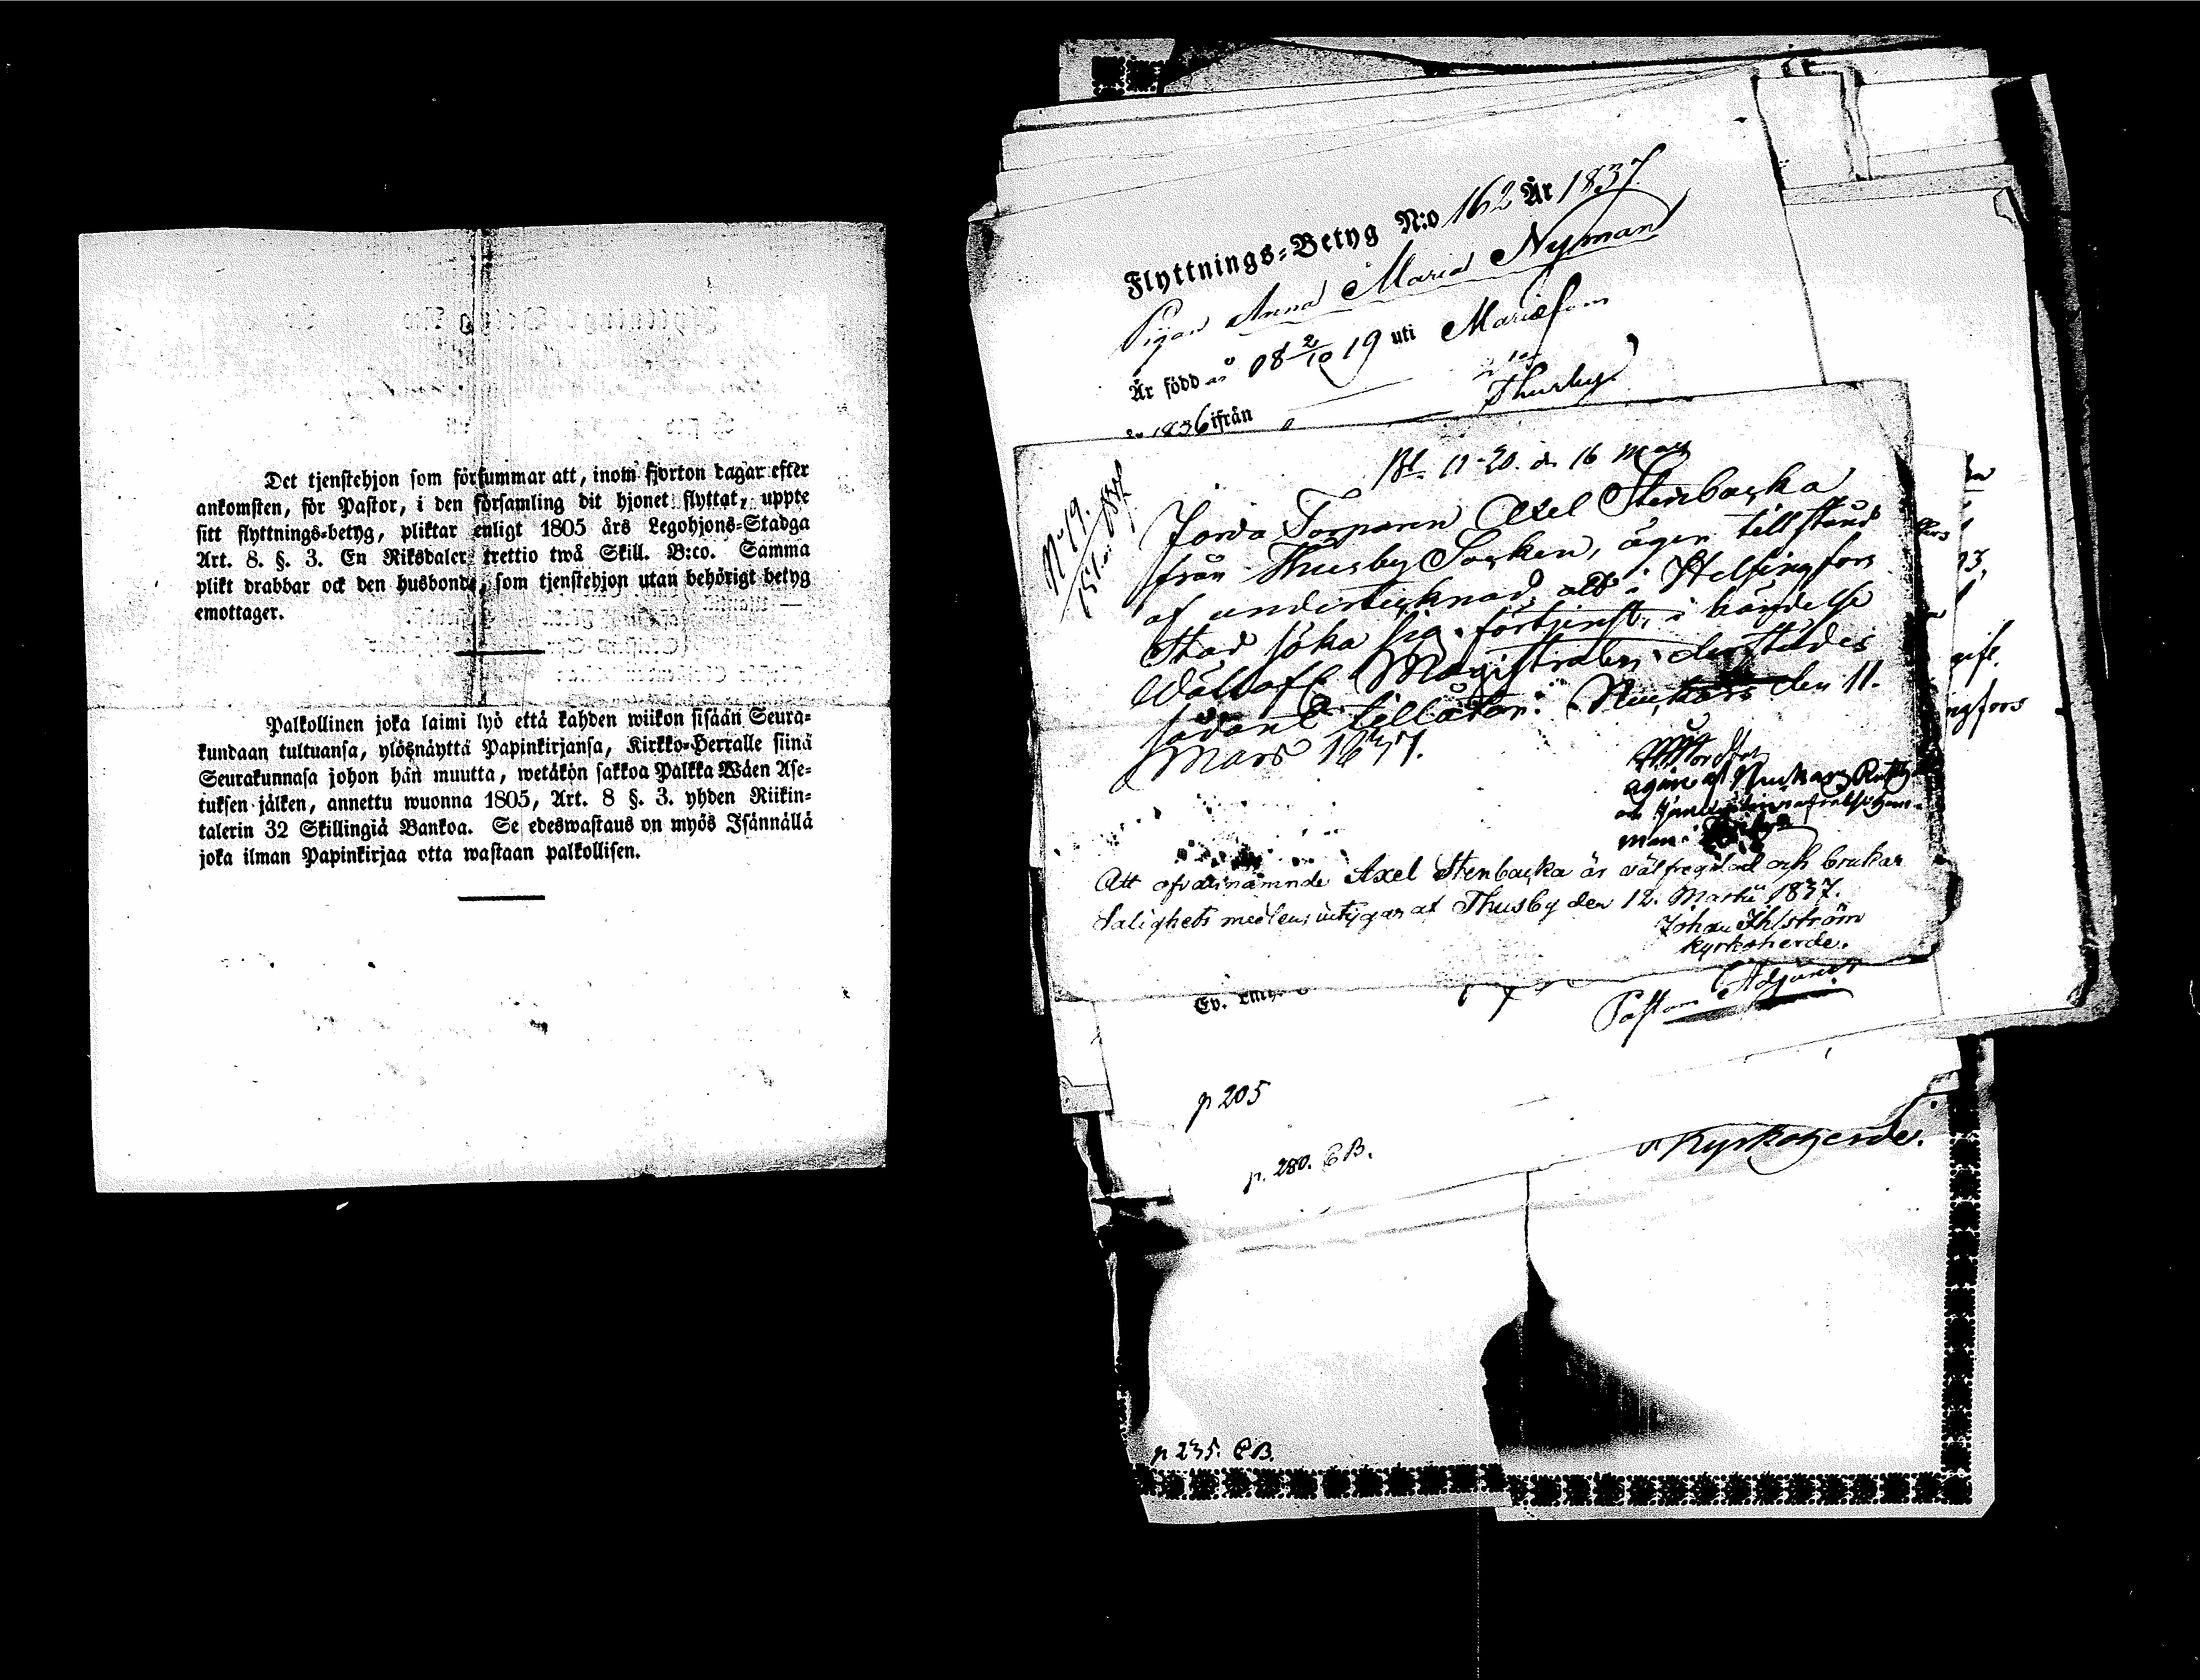 Det tjenstehjon som försummar att, inom fjorton dagar efter
ankomsten, för Pastor, i den församling dit hjonet flyttat, uppte
sitt flyttnings-betyg, pliktar enligt 1805 års Legohjons-Stadga
Art. 8. §. 3. En Riksdaler trettio twå Skill. B:co. Samma
plikt drabbar ock den husbonde, som tjenstehjon utan behörigt betyg
emottager.
Palkollinen joka laimi lyö että kahden wiikon sisään Seura-
kundaan tultuansa, ylösnäyttä Papinkirjansa, Kirkko-Herralle siinä
Seurakunnasa johon hän muutta, wetäkön sakkoa Palkka Wäen Ase-
tuksen jälken, annettu wuonna 1805, Art. 8 §. 3. yhden Riikin-
talerin 32 Skillingiä Bankoa. Se edeswastaus on myös Isännällä
joka ilman Papinkirjaa otta wastaan palkollisen.
Flyttnings-Betyg N:o 162 År 1837
Pigan Anna Maria Nyman
Är född 18 2/10 19 uti
1836 ifrån Thusby
N:o 19.
Bl. 11-20. d. 16 Mars
Jorda Torparen Axel Stenbacka
från Thusby Socken, äger tillstånd
af undertecknad, att i Helsingfors
Stad söka sig förtjenst, i händelse
Wällofl. Magistraten derstädes
sådant tillåter. den 11.
Mars 1837.
Att ofvannämnde Axel Stenbacka är välfrejdad och brukar
Salighets medlen, intygar at Thusby den 12. Martii 1837.
Johan Ihlström
Kyrkoherde.
Pastors Adjunct
p 205
p. 280. CB.
Kyrkoherde.
p 235. CB.